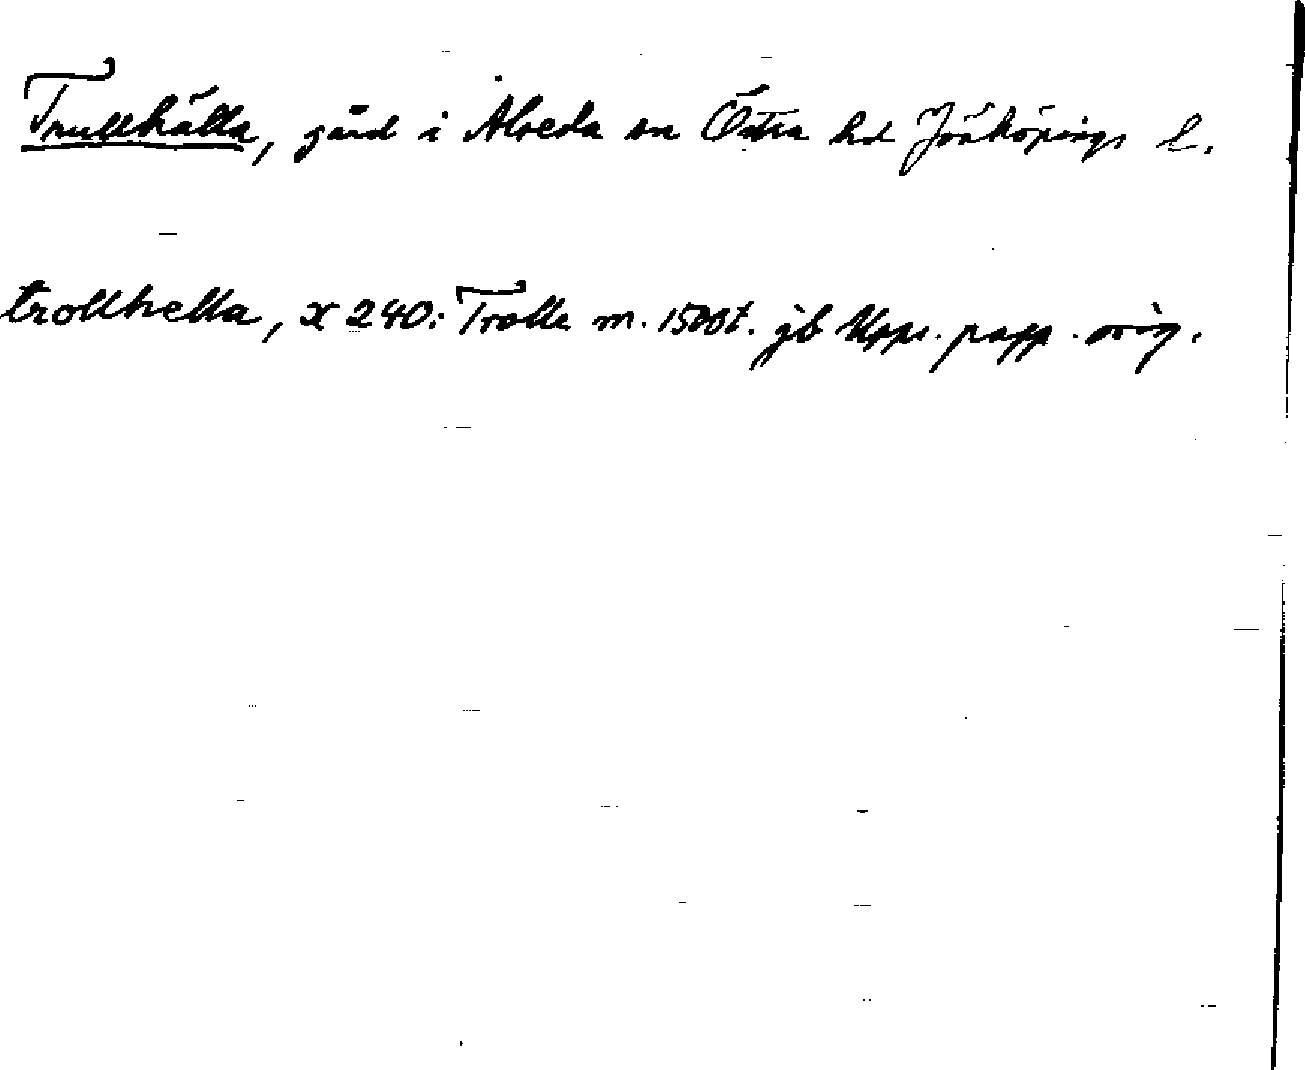 Trullhälla, gård i Alseda sn Östra hd Jönköpings l.
trollhella, X 240: Trolle m. 1500t. jb Upps. papp. orig.